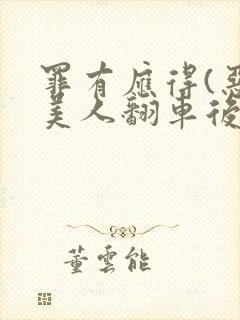 罪有應得(惡
美人翻車後
董雲能